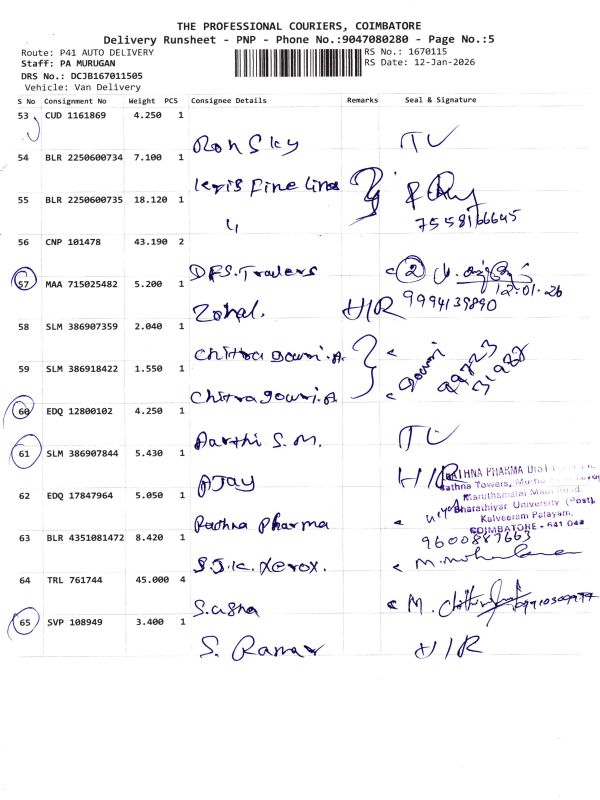 THE PROFESSIONAL COURIERS, COIMBATORE
Delivery Runsheet - PNP - Phone No.:9047080280 - Page No.:5
Route: P41 AUTO DELIVERY
RS No.: 1670115
Staff: PA MURUGAN
RS Date: 12-Jan-2026
DRS No.: DCJB167011505
Vehicle: Van Delivery
S No Consignment No Weight PCS Consignee Details Remarks Seal & Signature
53 CUD 1161869 4.250 1
Ron Sky
54 BLR 2250600734 7.100 1
fine line
55 BLR 2250600735 18.120 1
7558166645
56 CNP 101478 43.190 2
D.F.S. Traders 2
12.01.26
57 MAA 715025482 5.200 1
Zohal. H/R 9994139890
58 SLM 386907359 2.040 1
Chitra gowri.A.
59 SLM 386918422 1.550 1
Chitra gowri.A gowri
60 EDQ 12800102 4.250 1
Aarthi S.M.
61 SLM 386907844 5.430 1
AJay H/R
RATHNA PHARMA
Rathna Towers,
Maruthamalai Main Road,
62 EDQ 17847964 5.050 1
Bharathiyar University (Post),
Rathna Pharma
Kalveeram Palayam,
COIMBATORE - 641 046
63 BLR 4351081472 8.420 1
9600887663
S.S.K. Xerox.
64 TRL 761744 45.000 4
S.usha M.
65 SVP 108949 3.400 1
S. Raman H/R